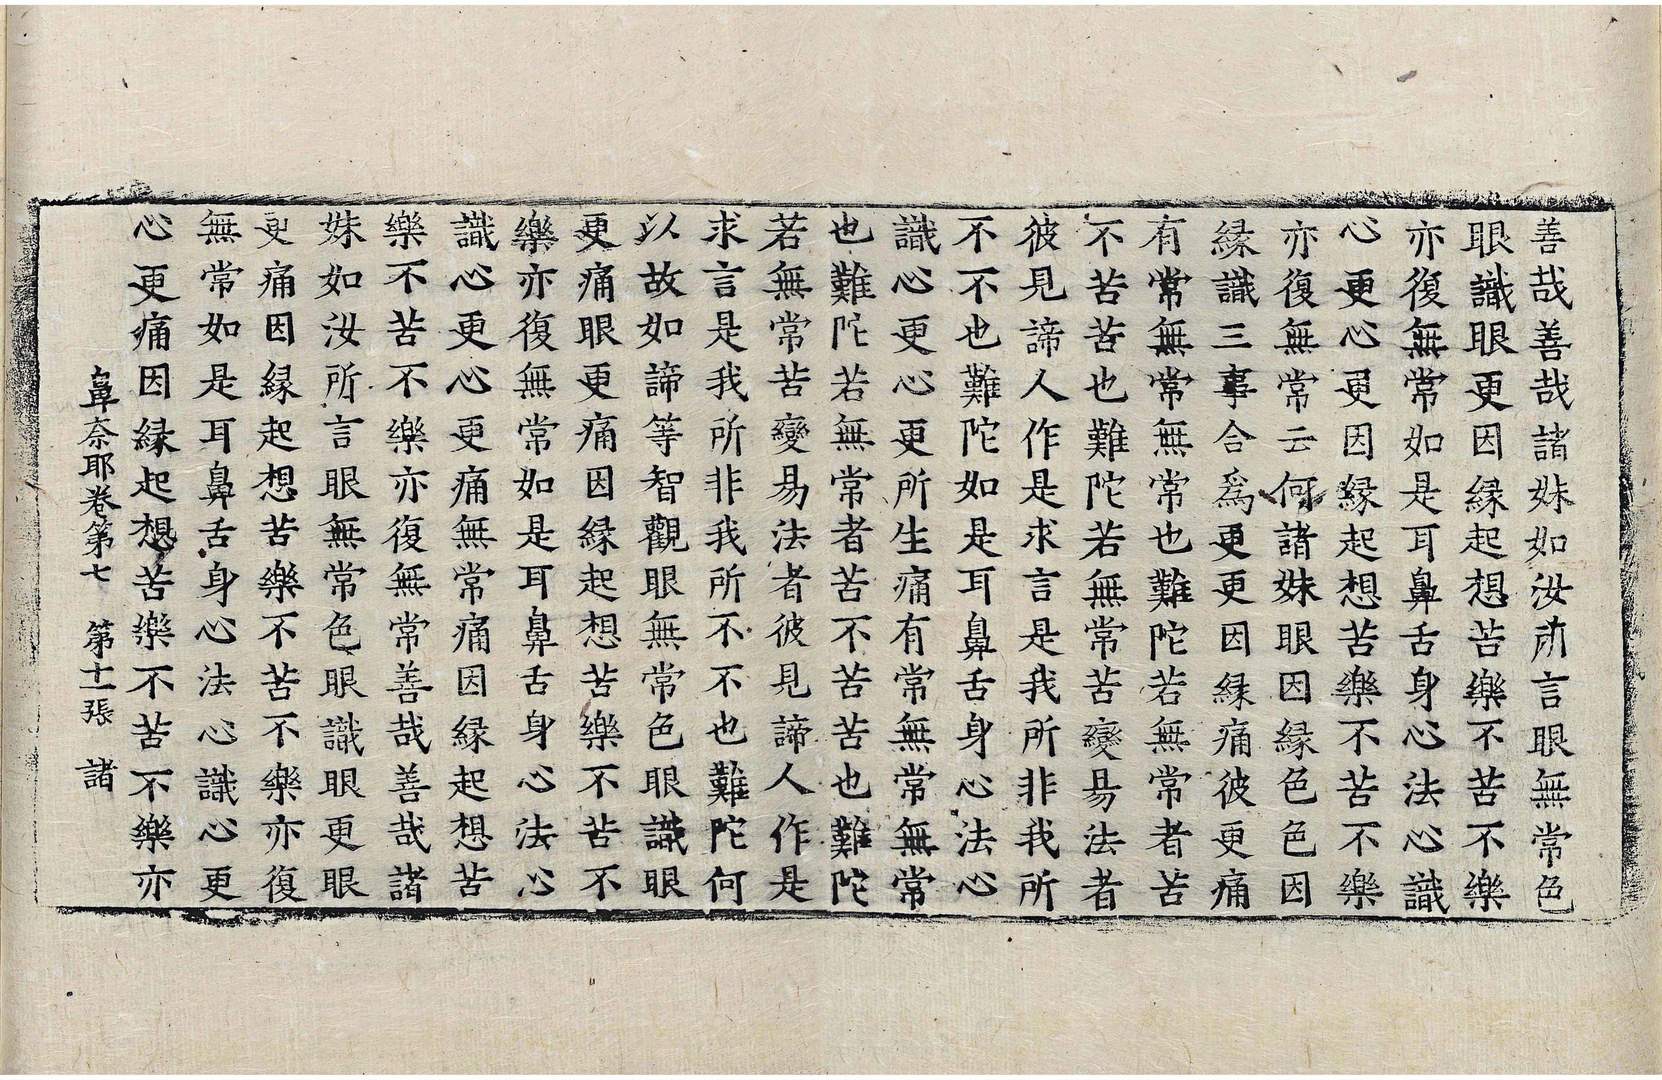 善哉善哉諸妹如汝所言眼無常色
眼識眼更因縁起想苦樂不苦不樂
亦復無常如是耳鼻舌身心法心識
心更心更因縁起想苦樂不苦不樂
亦復無常云何諸妹眼因縁色色因
縁識三事合爲更更因縁痛彼更痛
有常無常無常也難陀若無常者苦
不苦苦也難陀若無常苦變易法者
彼見諦人作是求言是我所非我所
不不也難陀如是耳鼻舌身心法心
識心更心更所生痛有常無常無常
也難陀若無常者苦不苦苦也難陀
若無常苦變易法者彼見諦人作是
求言是我所非我所不不也難陀何
以故如諦等智觀眼無常色眼識眼
更痛眼更痛因縁起想苦樂不苦不
樂亦復無常如是耳鼻舌身心法心
識心更心更痛無常痛因縁起想苦
樂不苦不樂亦復無常善哉善哉諸
妹如汝所言眼無常色眼識眼更眼
更痛因縁起想苦樂不苦不樂亦復
無常如是耳鼻舌身心法心識心更
心更痛因縁起想苦樂不苦不樂亦
鼻奈耶卷第七　第十一張　諸